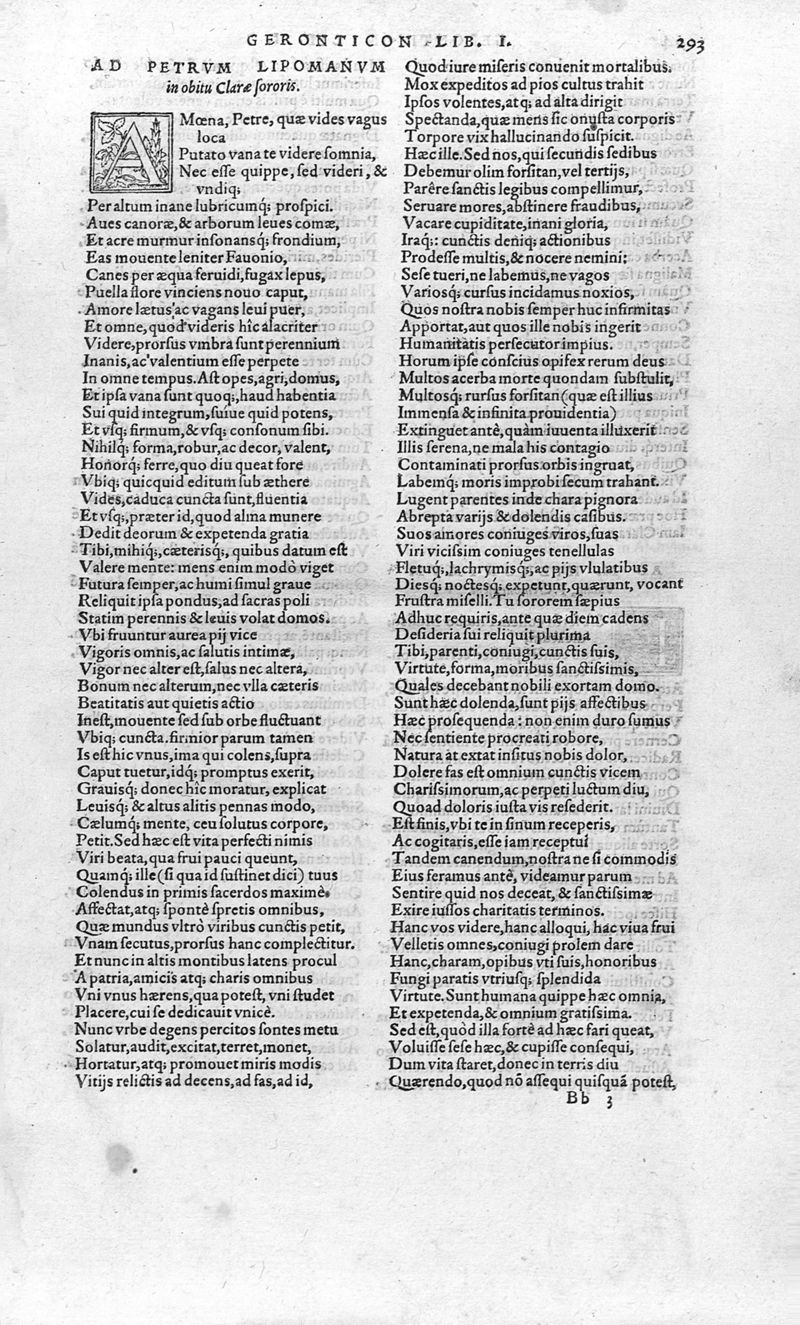 GERONTICON LIB. I. 293
AD PETRVM LIPOMANVM
in obitu Claræ sororis.
AMœna, Petre, quæ vides vagus
loca
Putato vana te videre somnia,
Nec esse quippe, sed videri, &
vndiq;
Per altum inane lubricumq; prospici.
Aues canoræ, & arborum leues comæ,
Et acre murmur insonansq; frondium,
Eas mouente leniter Fauonio,
Canes per æqua feruidi, fugax lepus,
Puella flore vinciens nouo caput,
Amore lætus ac vagans leui puer,
Et omne, quod videris hîc alacriter
Videre, prorsus vmbra sunt perennium
Inanis, ac valentium esse perpete
In omne tempus. Ast opes, agri, domus,
Et ipsa vana sunt quoq;, haud habentia
Sui quid integrum, suiue quid potens,
Et vsq; firmum, & vsq; consonum sibi.
Nihilq; forma, robur, ac decor, valent,
Honorq; ferre, quo diu queat fore
Vbiq; quicquid editum sub æthere
Vides, caduca cuncta sunt, fluentia
Et vsq;, præter id, quod alma munere
Dedit deorum & expetenda gratia
Tibi, mihiq;, cæterisq;, quibus datum est
Valere mente: mens enim modò viget
Futura semper, ac humi simul graue
Reliquit ipsa pondus, ad sacras poli
Statim perennis & leuis volat domos.
Vbi fruuntur aurea pij vice
Vigoris omnis, ac salutis intimæ,
Vigor nec alter est, salus nec altera,
Bonum nec alterum, nec vlla cæteris
Beatitatis aut quietis actio
Inest, mouente sed sub orbe fluctuant
Vbiq; cuncta. firmior parum tamen
Is est hic vnus, ima qui colens, supra
Caput tuetur, idq; promptus exerit,
Grauisq; donec hîc moratur, explicat
Leuisq; & altus alitis pennas modo,
Cælumq; mente, ceu solutus corpore,
Petit. Sed hæc est vita perfecti nimis
Viri beata, qua frui pauci queunt,
Quamq; ille (si qua id sustinet dici) tuus
Colendus in primis sacerdos maximè
Affectat, atq; spontè spretis omnibus,
Quæ mundus vltrò viribus cunctis petit,
Vnam secutus, prorsus hanc complectitur.
Et nunc in altis montibus latens procul
A patria, amicis atq; charis omnibus
Vni vnus hærens, qua potest, vni studet
Placere, cui se dedicauit vnicè.
Nunc vrbe degens percitos sontes metu
Solatur, audit, excitat, terret, monet,
Hortatur, atq; promouet miris modis
Vitijs relictis ad decens, ad fas, ad id,
Quod iure miseris conuenit mortalibus.
Mox expeditos ad pios cultus trahit
Ipsos volentes, atq; ad alta dirigit
Spectanda, quæ mens sic onusta corporis
Torpore vix hallucinando suspicit.
Hæc ille. Sed nos, qui secundis sedibus
Debemur olim forsitan, vel tertijs,
Parêre sanctis legibus compellimur,
Seruare mores, abstinere fraudibus,
Vacare cupiditate, inani gloria,
Iraq;: cunctis deniq; actionibus
Prodesse multis, & nocere nemini:
Sese tueri, ne labemus, ne vagos
Variosq; cursus incidamus noxios,
Quos nostra nobis semper huc infirmitas
Apportat, aut quos ille nobis ingerit
Humanitatis persecutor impius.
Horum ipse conscius opifex rerum deus
Multos acerba morte quondam substulit,
Multosq; rursus forsitan (quæ est illius
Immensa & infinita prouidentia)
Extinguet antè, quàm iuuenta illuxerit
Illis serena, ne mala his contagio
Contaminati prorsus orbis ingruat,
Labemq; moris improbi secum trahant.
Lugent parentes inde chara pignora
Abrepta varijs & dolendis casibus.
Suos amores coniuges viros, suas
Viri vicissim coniuges tenellulas
Fletuq;, lachrymisq;, ac pijs vlulatibus
Diesq; noctesq; expetunt, quærunt, vocant
Frustra miselli. Tu sororem sæpius
Adhuc requiris, ante quæ diem cadens
Desideria sui reliquit plurima
Tibi, parenti, coniugi, cunctis suis,
Virtute, forma, moribus sanctissimis,
Quales decebant nobili exortam domo.
Sunt hæc dolenda, sunt pijs affectibus
Hæc prosequenda: non enim duro sumus
Nec sentiente procreati robore,
Natura at extat insitus nobis dolor,
Dolere fas est omnium cunctis vicem
Charissimorum, ac perpeti luctum diu,
Quoad doloris iusta vis resederit.
Est finis, vbi te in sinum receperis,
Ac cogitaris, esse iam receptui
Tandem canendum, nostra ne si commodis
Eius feramus antè, videamur parum
Sentire quid nos deceat, & sanctissimæ
Exire iussos charitatis terminos.
Hanc vos videre, hanc alloqui, hac viua frui
Velletis omnes, coniugi prolem dare
Hanc, charam, opibus vti suis, honoribus
Fungi paratis vtriusq; splendida
Virtute. Sunt humana quippe hæc omnia,
Et expetenda, & omnium gratissima.
Sed est, quòd illa fortè ad hæc fari queat,
Voluisse sese hæc, & cupisse consequi,
Dum vita staret, donec in terris diu
Quærendo, quod nō assequi quisquā potest,
Bb 3